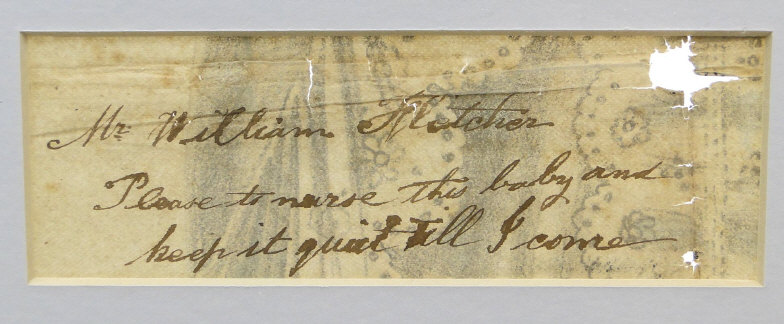 Mr William Fletcher
Please to nurse this baby and
keep it quiet till I come